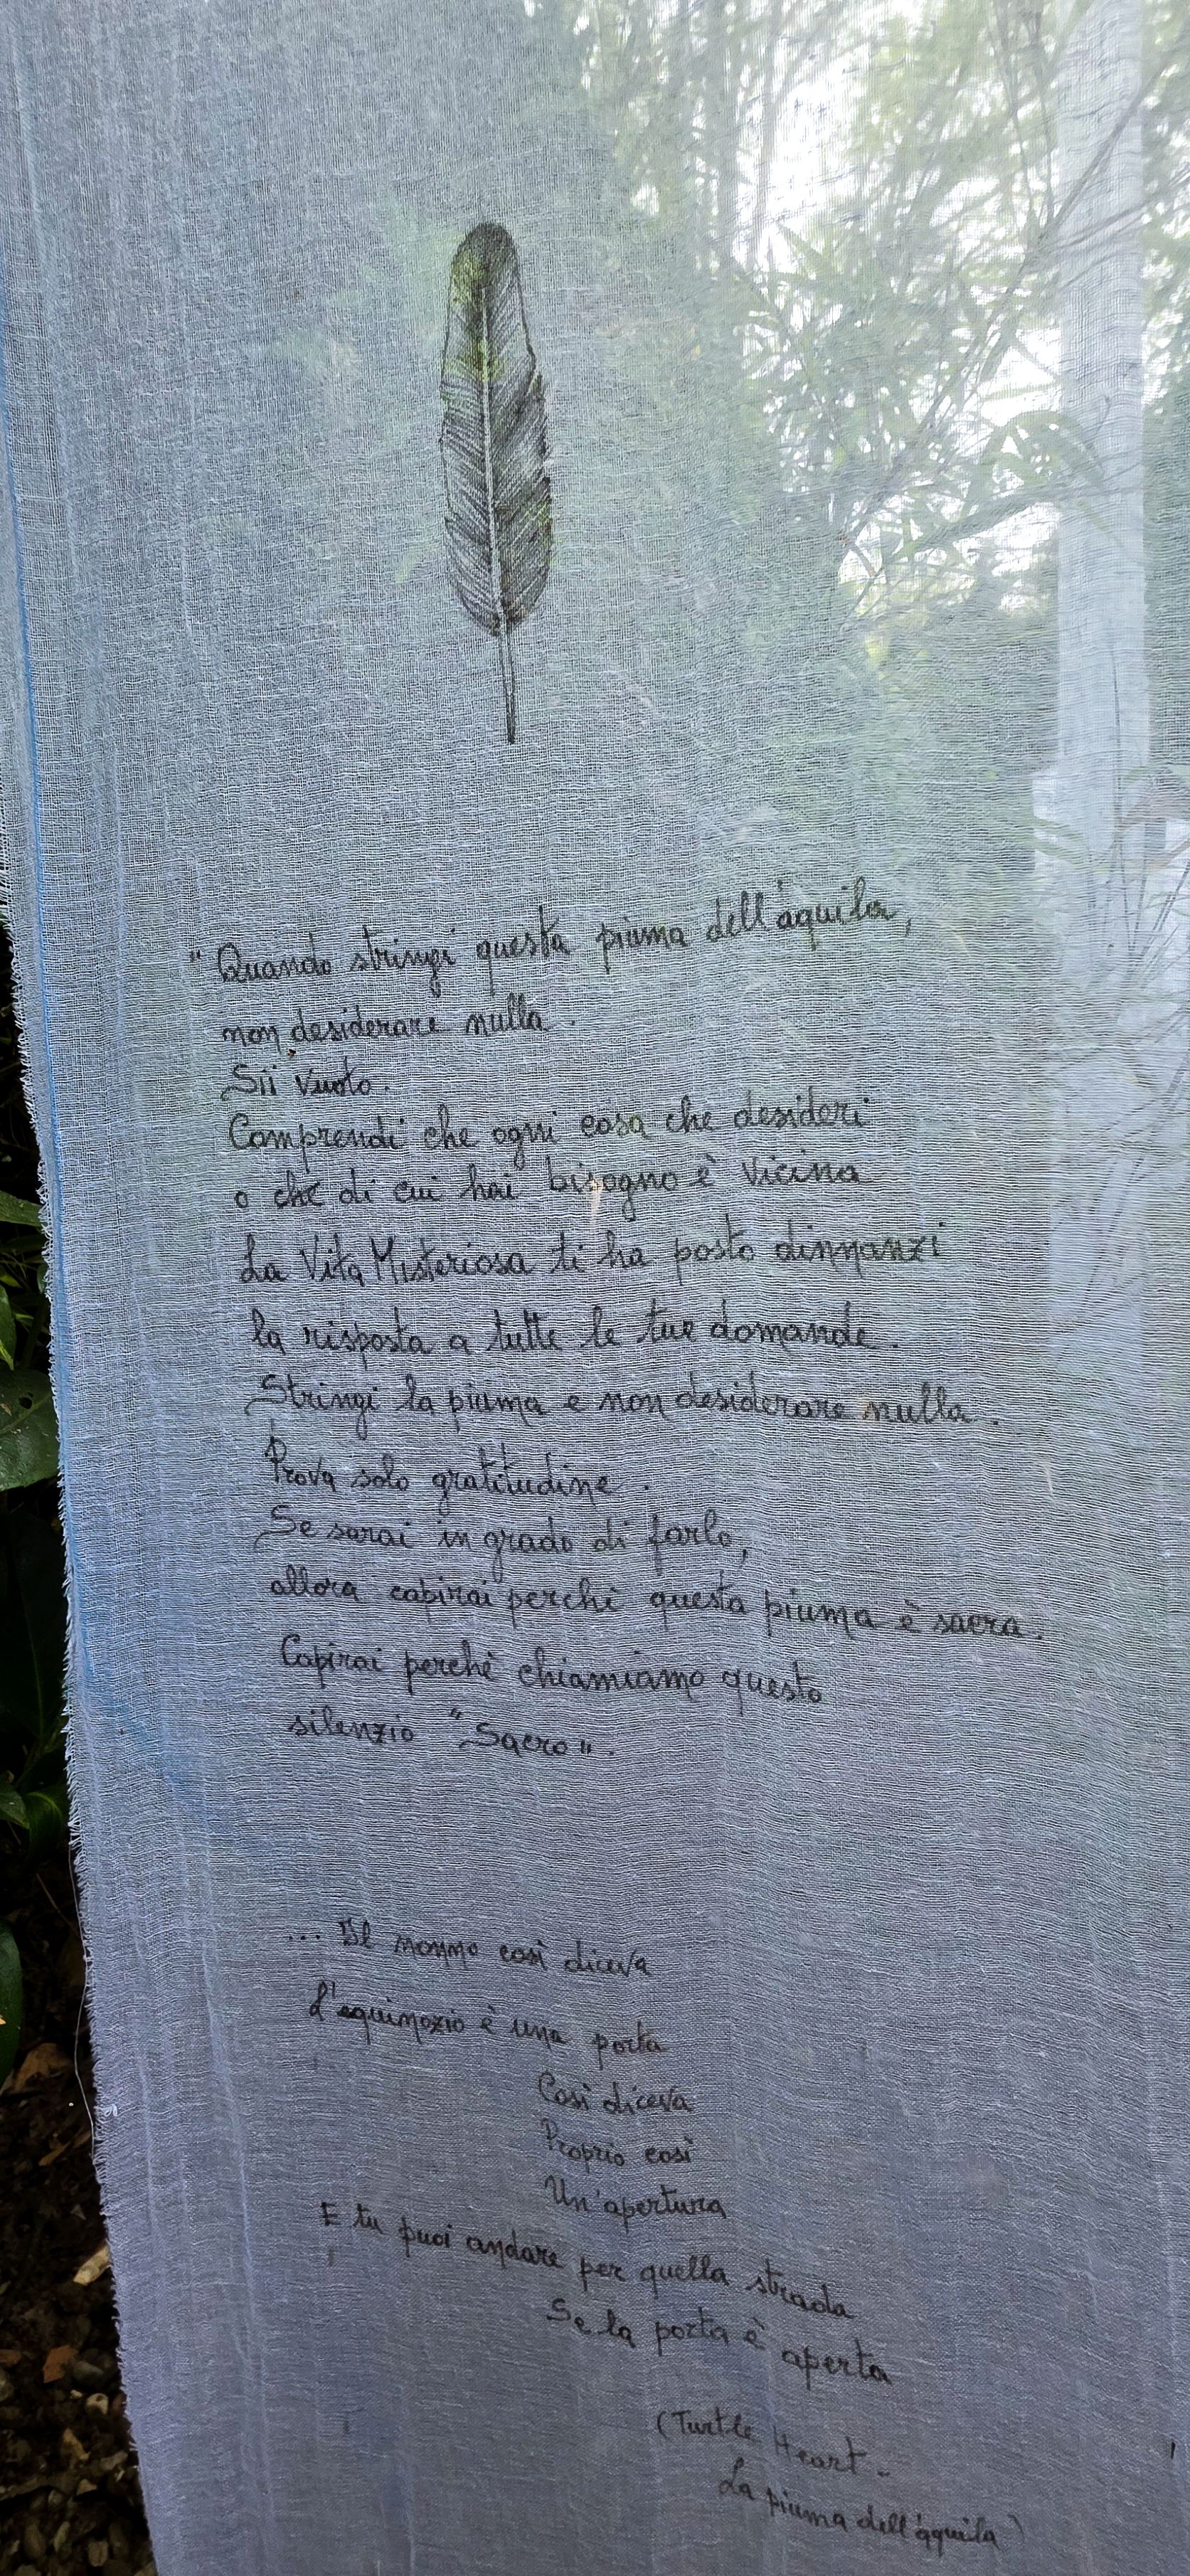 "Quando stringi questa piuma dell'aquila,
non desiderare nulla.
Sii vuoto.
Comprendi che ogni cosa che desideri
o che di cui hai bisogno è vicina
La Vita Misteriosa ti ha posto dinnanzi
la risposta a tutte le tue domande.
Stringi la piuma e non desiderare nulla.
Prova solo gratitudine.
Se sarai in grado di farlo,
allora capirai perché questa piuma è sacra.
Capirai perché chiamiamo questo
silenzio "Sacro".
... Il nonno così diceva
L'equinozio è una porta
Così diceva
Proprio così
Un'apertura
E tu puoi andare per quella strada
Se la porta è aperta
(Turtle Heart -
La piuma dell'aquila)